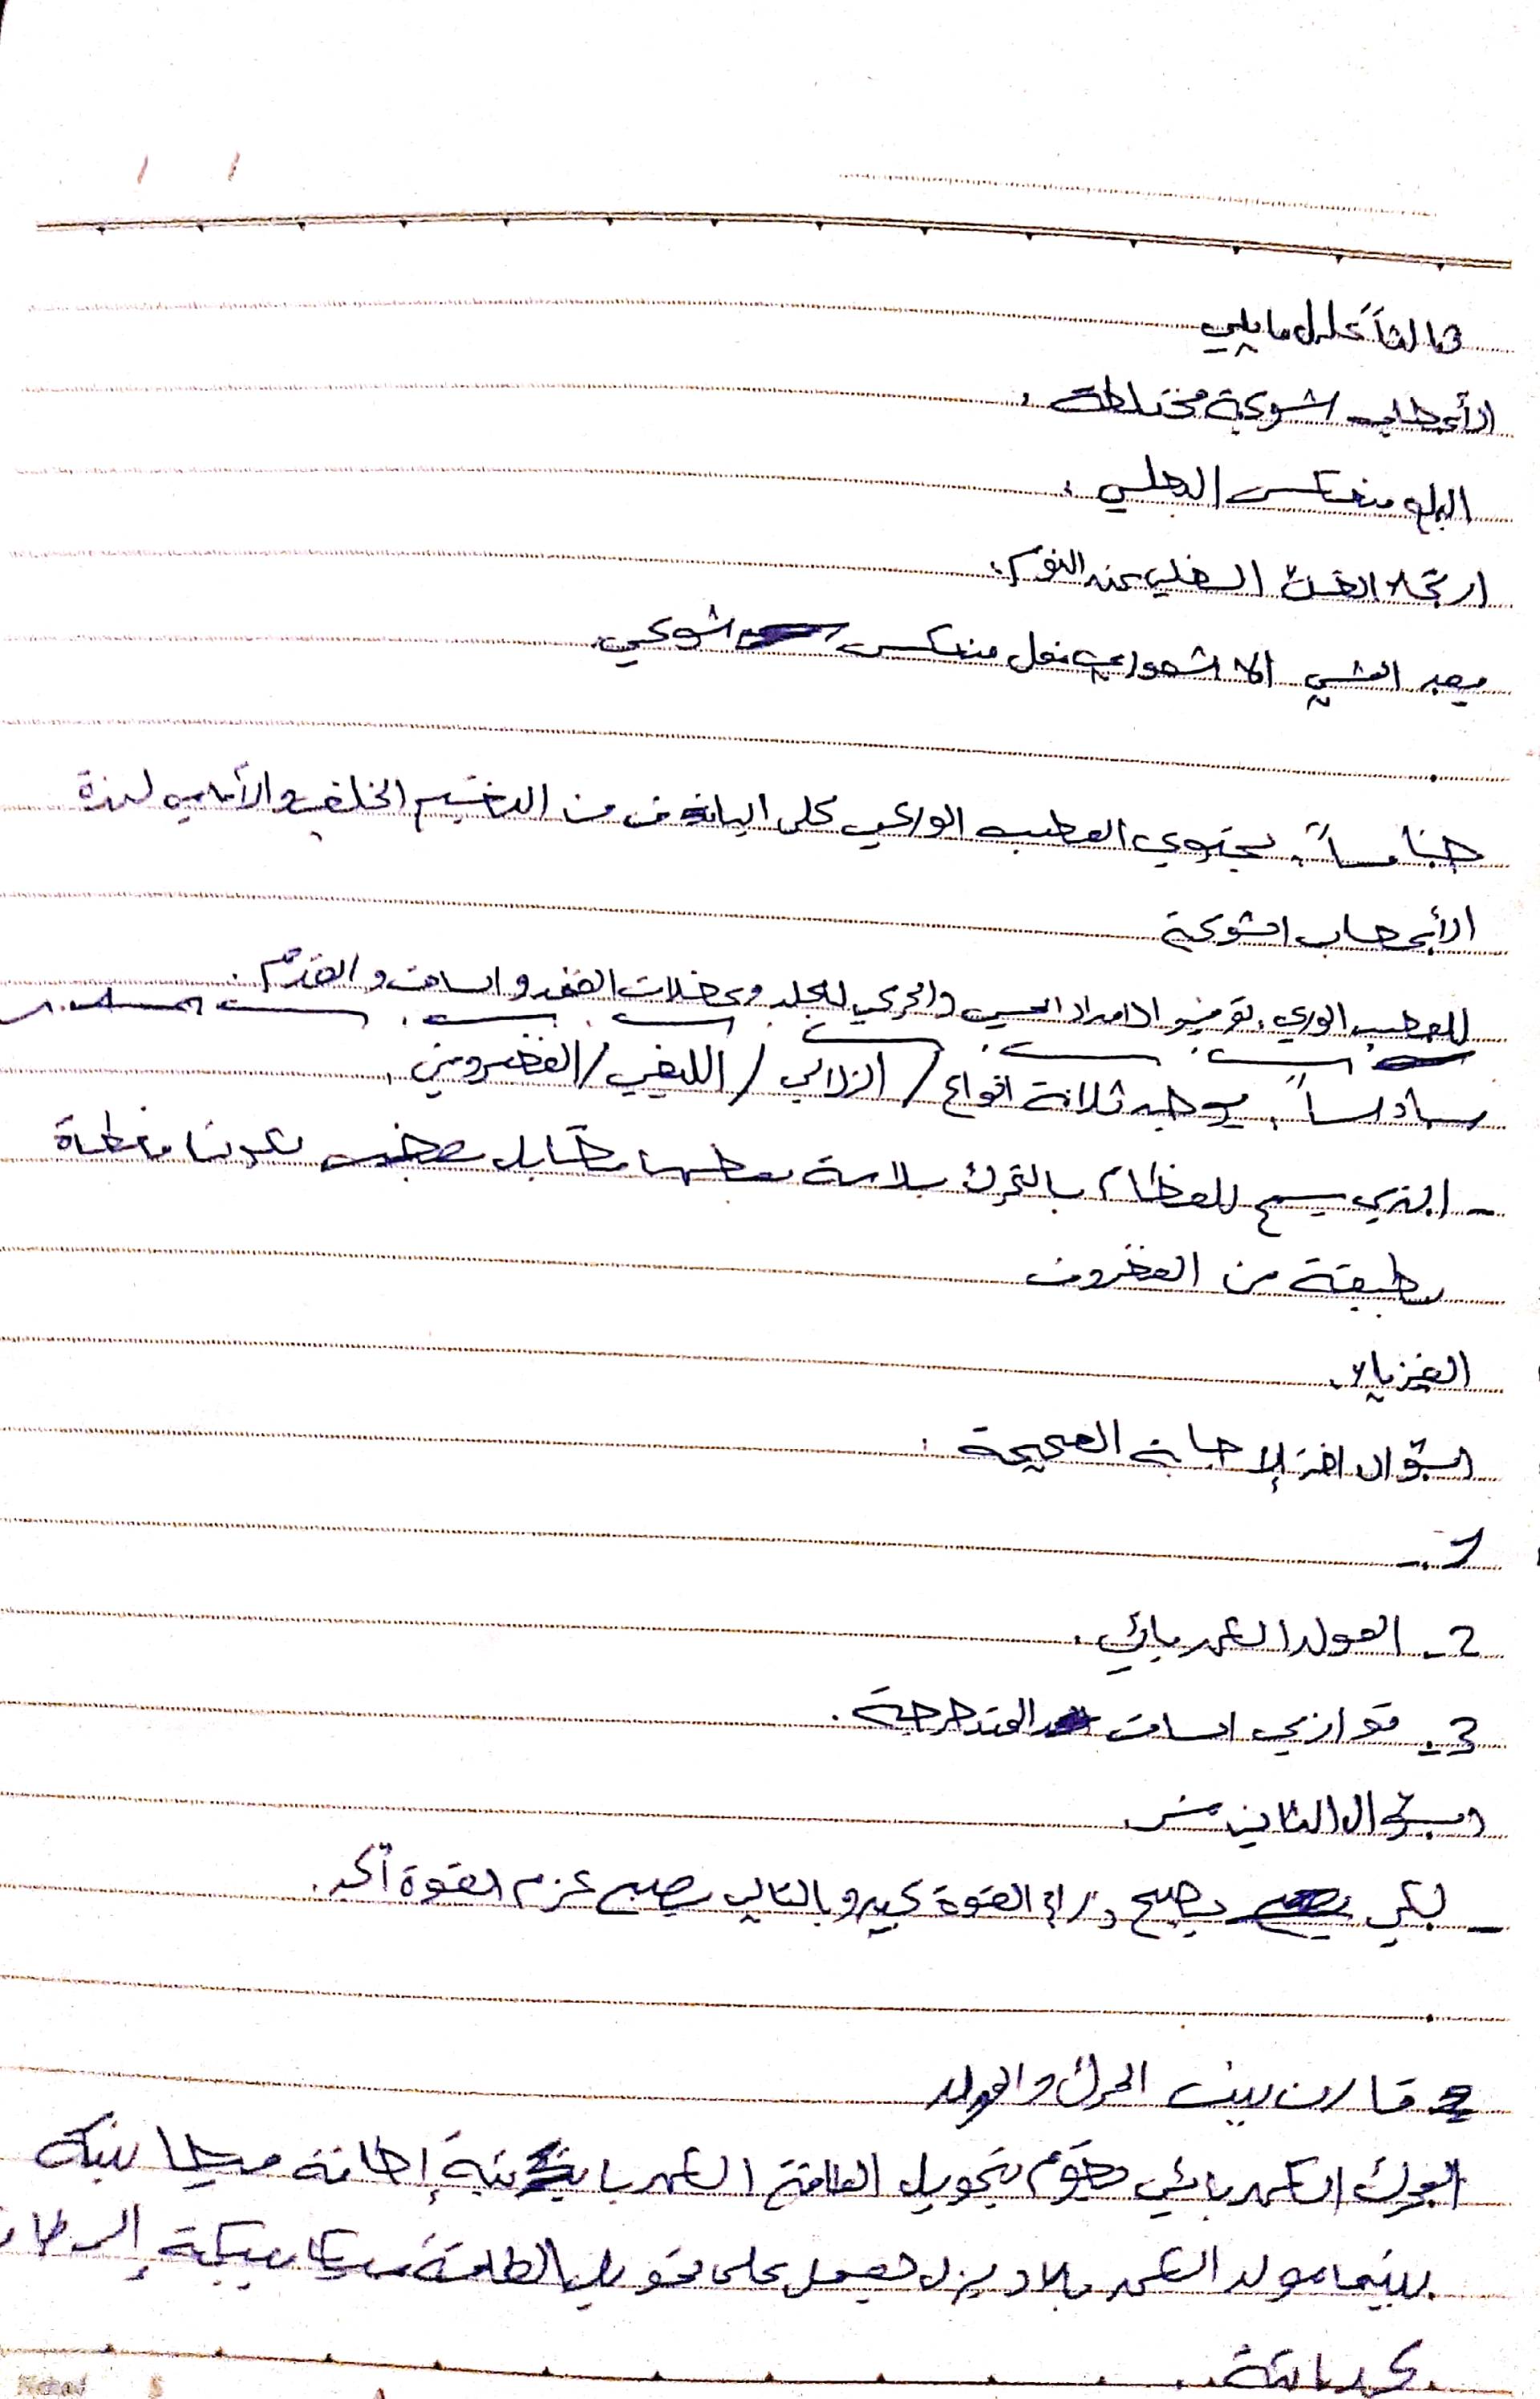 ثالثاً علل ما يلي
الأعصاب الشوكية مختلطة .
البلع منعكس الدماغي .
ارتخاء الفك السفلي عند النوم .
يعد المشي اللاشعوري فعل منعكس شوكي
خامساً . يحتوي العصب الوركي على الياف من القسم الخلفي والأمامي لعدة
الأعصاب الشوكية
للعصب الوركي . توفير الامداد الحسي والحركي للجلد وعضلات الفخذ والساق والقدم .
سادساً . يوجد ثلاثة انواع / الزلالي / الليفي / الغضروفي .
- الذي يسمح للعظام بالتحرك بسلاسة بعضها مقابل بعض كونها مغطاة
بطبقة من الغضروف
الفيزياء
السؤال اختر الإجابة الصحيحة :
1 -
2 - المولد الكهربائي .
3 - توازي الساق المتدحرجة .
السؤال الثاني فسر
- لكي يصبح ذراع القوة كبير وبالتالي يصبح عزم القوة أكبر .
2 قارن بين المحرك والمولد
المحرك الكهربائي يقوم بتحويل الطاقة الكهربائية إلى طاقة ميكانيكية
بينما مولد الكهرباء يعمل على تحويل الطاقة ميكانيكية إلى طاقة
كهربائية .